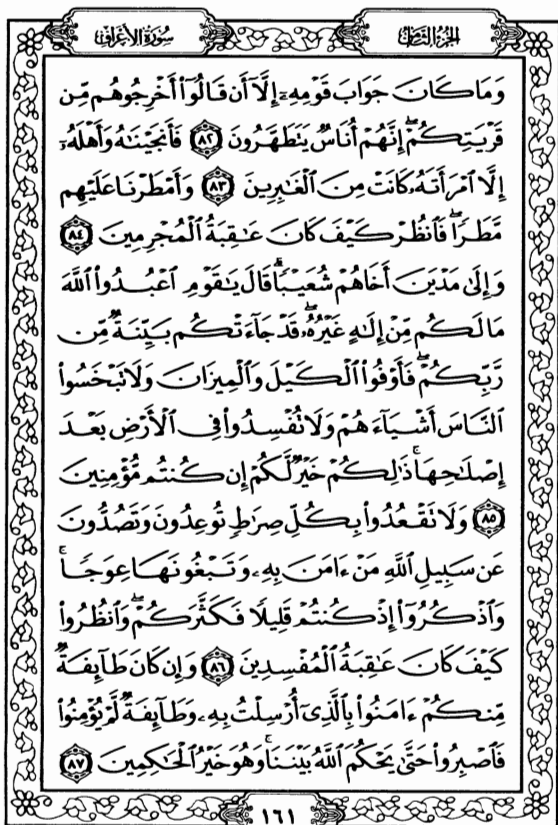 الجزء الثامن
سورة الأعراف
وَمَا كَانَ جَوَابَ قَوْمِهِۦٓ إِلَّآ أَن قَالُوٓا۟ أَخْرِجُوهُم مِّن
قَرْيَتِكُمْ ۖ إِنَّهُمْ أُنَاسٌ يَتَطَهَّرُونَ ٨٢ فَأَنجَيْنَٰهُ وَأَهْلَهُۥٓ
إِلَّا ٱمْرَأَتَهُۥ كَانَتْ مِنَ ٱلْغَٰبِرِينَ ٨٣ وَأَمْطَرْنَا عَلَيْهِم
مَّطَرًا ۖ فَٱنظُرْ كَيْفَ كَانَ عَٰقِبَةُ ٱلْمُجْرِمِينَ ٨٤
وَإِلَىٰ مَدْيَنَ أَخَاهُمْ شُعَيْبًا ۗ قَالَ يَٰقَوْمِ ٱعْبُدُوا۟ ٱللَّهَ
مَا لَكُم مِّنْ إِلَٰهٍ غَيْرُهُۥ ۖ قَدْ جَآءَتْكُم بَيِّنَةٌ مِّن
رَّبِّكُمْ ۖ فَأَوْفُوا۟ ٱلْكَيْلَ وَٱلْمِيزَانَ وَلَا تَبْخَسُوا۟
ٱلنَّاسَ أَشْيَآءَهُمْ وَلَا تُفْسِدُوا۟ فِى ٱلْأَرْضِ بَعْدَ
إِصْلَٰحِهَا ۚ ذَٰلِكُمْ خَيْرٌ لَّكُمْ إِن كُنتُم مُّؤْمِنِينَ
٨٥ وَلَا تَقْعُدُوا۟ بِكُلِّ صِرَٰطٍ تُوعِدُونَ وَتَصُدُّونَ
عَن سَبِيلِ ٱللَّهِ مَنْ ءَامَنَ بِهِۦ وَتَبْغُونَهَا عِوَجًا ۚ
وَٱذْكُرُوٓا۟ إِذْ كُنتُمْ قَلِيلًا فَكَثَّرَكُمْ ۖ وَٱنظُرُوا۟
كَيْفَ كَانَ عَٰقِبَةُ ٱلْمُفْسِدِينَ ٨٦ وَإِن كَانَ طَآئِفَةٌ
مِّنكُمْ ءَامَنُوا۟ بِٱلَّذِىٓ أُرْسِلْتُ بِهِۦ وَطَآئِفَةٌ لَّمْ يُؤْمِنُوا۟
فَٱصْبِرُوا۟ حَتَّىٰ يَحْكُمَ ٱللَّهُ بَيْنَنَا ۚ وَهُوَ خَيْرُ ٱلْحَٰكِمِينَ ٨٧
١٦١